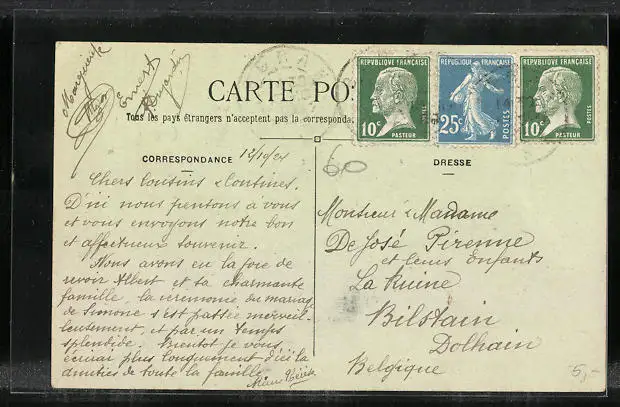 Marguerite
Ernest
Dujardin
CARTE PO
Tous les pays étrangers n'acceptent pas la corresponda
REPVBLIQUE FRANÇAISE
10c
PASTEUR
POSTES
REPUBLIQUE FRANÇAISE
25c
POSTES
REPVBLIQUE FRANÇAISE
10c
PASTEUR
POSTES
60
CORRESPONDANCE
12/10/24
Chers Cousins & Cousines.
D'ici nous pensons à vous
et vous envoyons notre bon
et affectueux souvenir.
Nous avons eu la joie de
revoir Albert et sa charmante
famille, la ceremonie du mariage
de Simone s'est passée merveil-
leusement, et par un temps
splendide. Bientot je vous
écrirai plus longuement d'ici là
amities de toute la famille.
DRESSE
Monsieur & Madame
De José Pirenne
et leurs enfants
La Ruine
Bilstain
Dolhain
Belgique
5,-